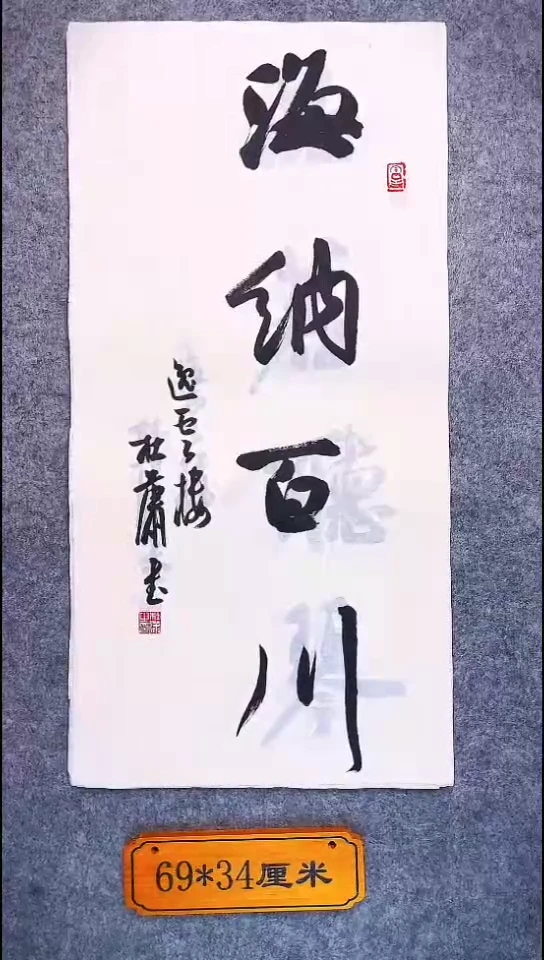 海纳百川
逸云楼
杜萧书
69*34厘米